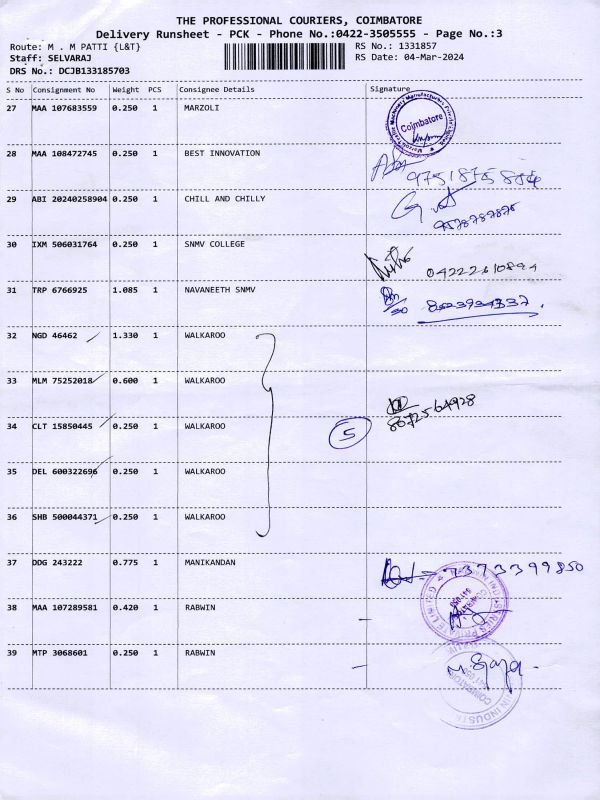 THE PROFESSIONAL COURIERS, COIMBATORE
Delivery Runsheet - PCK - Phone No.:0422-3505555 - Page No.:3
Route: M . M PATTI {L&T} RS No.: 1331857
Staff: SELVARAJ RS Date: 04-Mar-2024
DRS No.: DCJB133185703
S No Consignment No Weight PCS Consignee Details Signature
27 MAA 107683559 0.250 1 MARZOLI Coimbatore
28 MAA 108472745 0.250 1 BEST INNOVATION
29 ABI 20240258904 0.250 1 CHILL AND CHILLY
30 IXM 506031764 0.250 1 SNMV COLLEGE
31 TRP 6766925 1.085 1 NAVANEETH SNMV
32 NGD 46462 1.330 1 WALKAROO
33 MLM 75252018 0.600 1 WALKAROO
34 CLT 15850445 0.250 1 WALKAROO 5 8072564928
35 DEL 600322696 0.250 1 WALKAROO
36 SHB 500044371 0.250 1 WALKAROO
37 DDG 243222 0.775 1 MANIKANDAN 7373399850
38 MAA 107289581 0.420 1 RABWIN
39 MTP 3068601 0.250 1 RABWIN